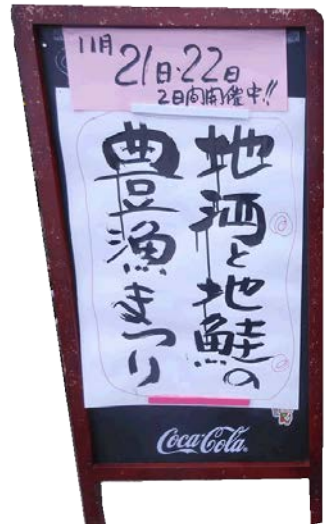 11月
21日・22日
2日間開催中!!
地酒と地鮭の
豊漁まつり
Coca-Cola